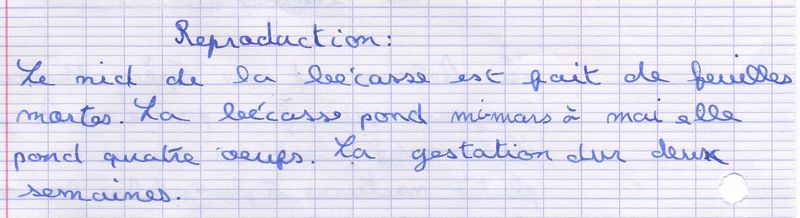 Reproduction:
Le nid de la bécasse est fait de feuilles
mortes. La bécasse pond mi-mars à mai elle
pond quatre oeufs. La gestation dur deux
semaines.